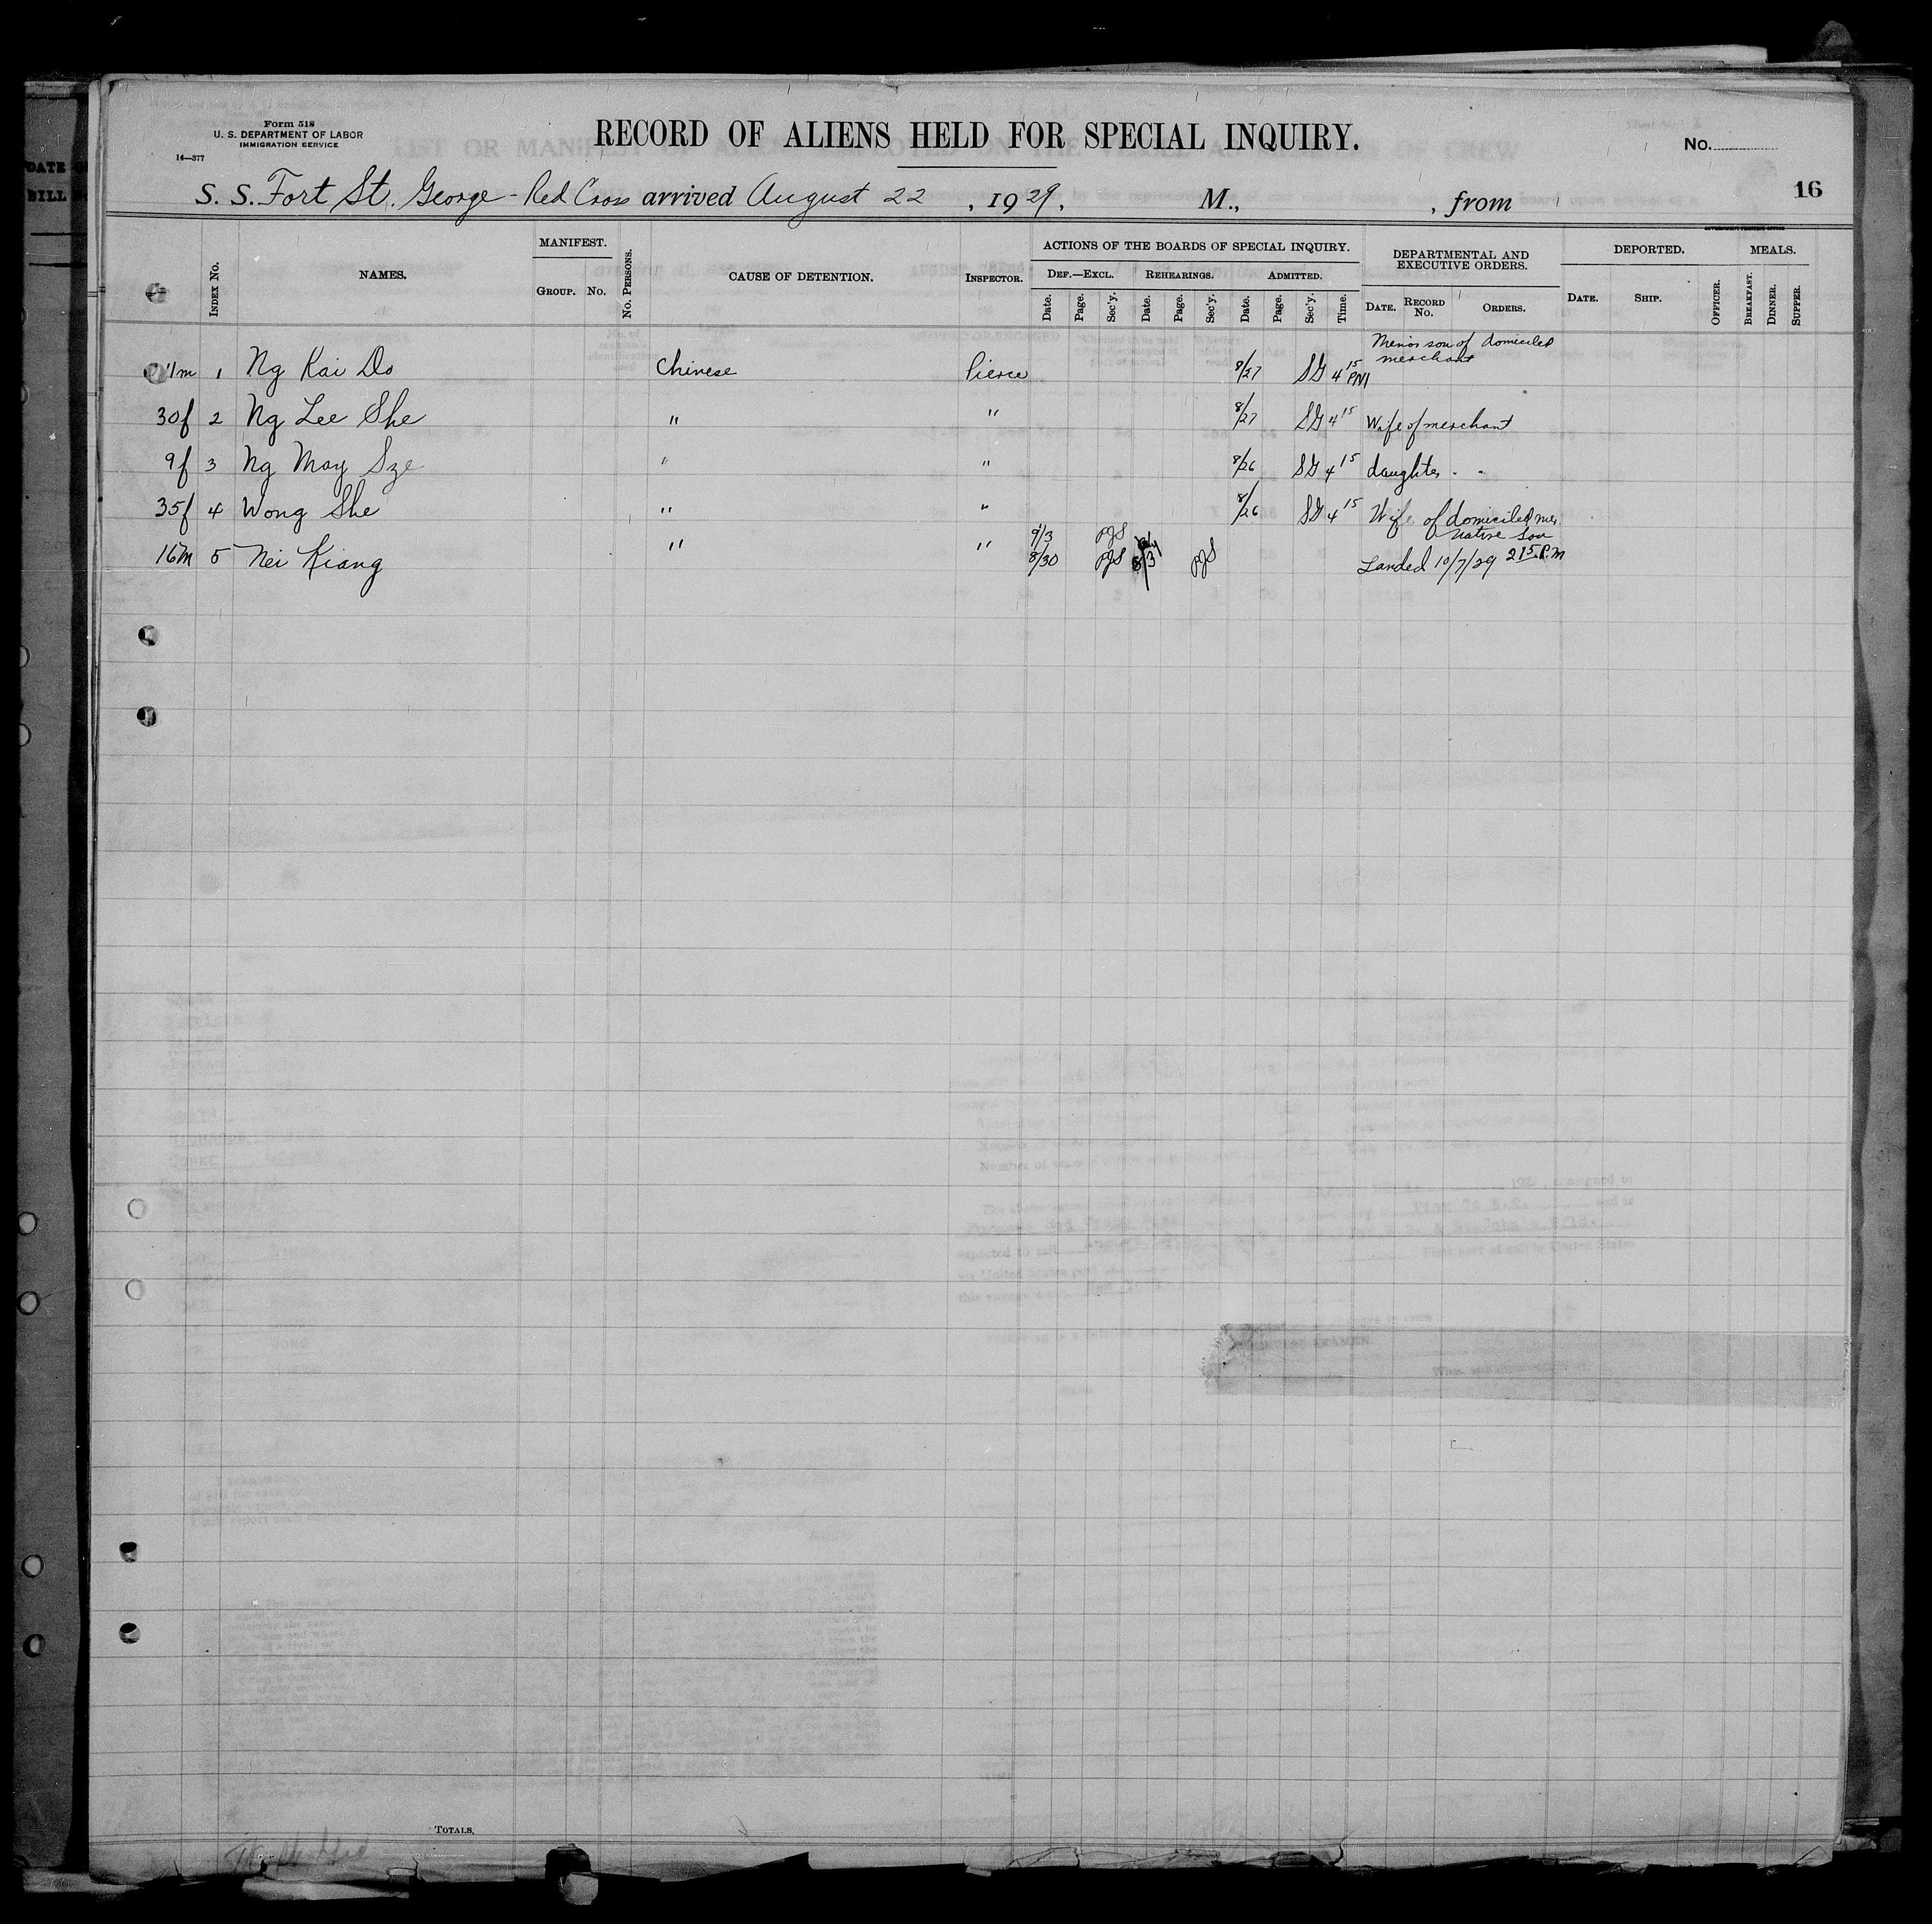 Form 518
U. S. DEPARTMENT OF LABOR
IMMIGRATION SERVICE
14—377
RECORD OF ALIENS HELD FOR SPECIAL INQUIRY.
No.
16
S. S. Fort St. George - Red Cross arrived August 22, 1929, M., , from
INDEX No. NAMES. MANIFEST. GROUP. No. No. PERSONS. CAUSE OF DETENTION. INSPECTOR. ACTIONS OF THE BOARDS OF SPECIAL INQUIRY. DEPARTMENTAL AND EXECUTIVE ORDERS. DEPORTED. MEALS.
DEF.—EXCL. REHEARINGS. ADMITTED.
Date. Page. Sec'y. Date. Page. Sec'y. Date. Page. Sec'y. Time. DATE. RECORD No. ORDERS. DATE. SHIP. OFFICER. BREAKFAST. DINNER. SUPPER.
Minor son of domiciled
merchant
11m 1 Ng Kai Do Chinese Pierce 8/27 SG 4 15 PM
30f 2 Ng Lee She " " 8/27 SG 4 15 Wife of merchant
9f 3 Ng May Sze " " 8/26 SG 4 15 daughter " "
35f 4 Wong She " " 8/26 SG 4 15 Wife of domiciled mer
9/3 PJS native son
16m 5 Nei Kiang " " 8/30 PJS PJS Landed 10/7/29 2 15 P.M
TOTALS,